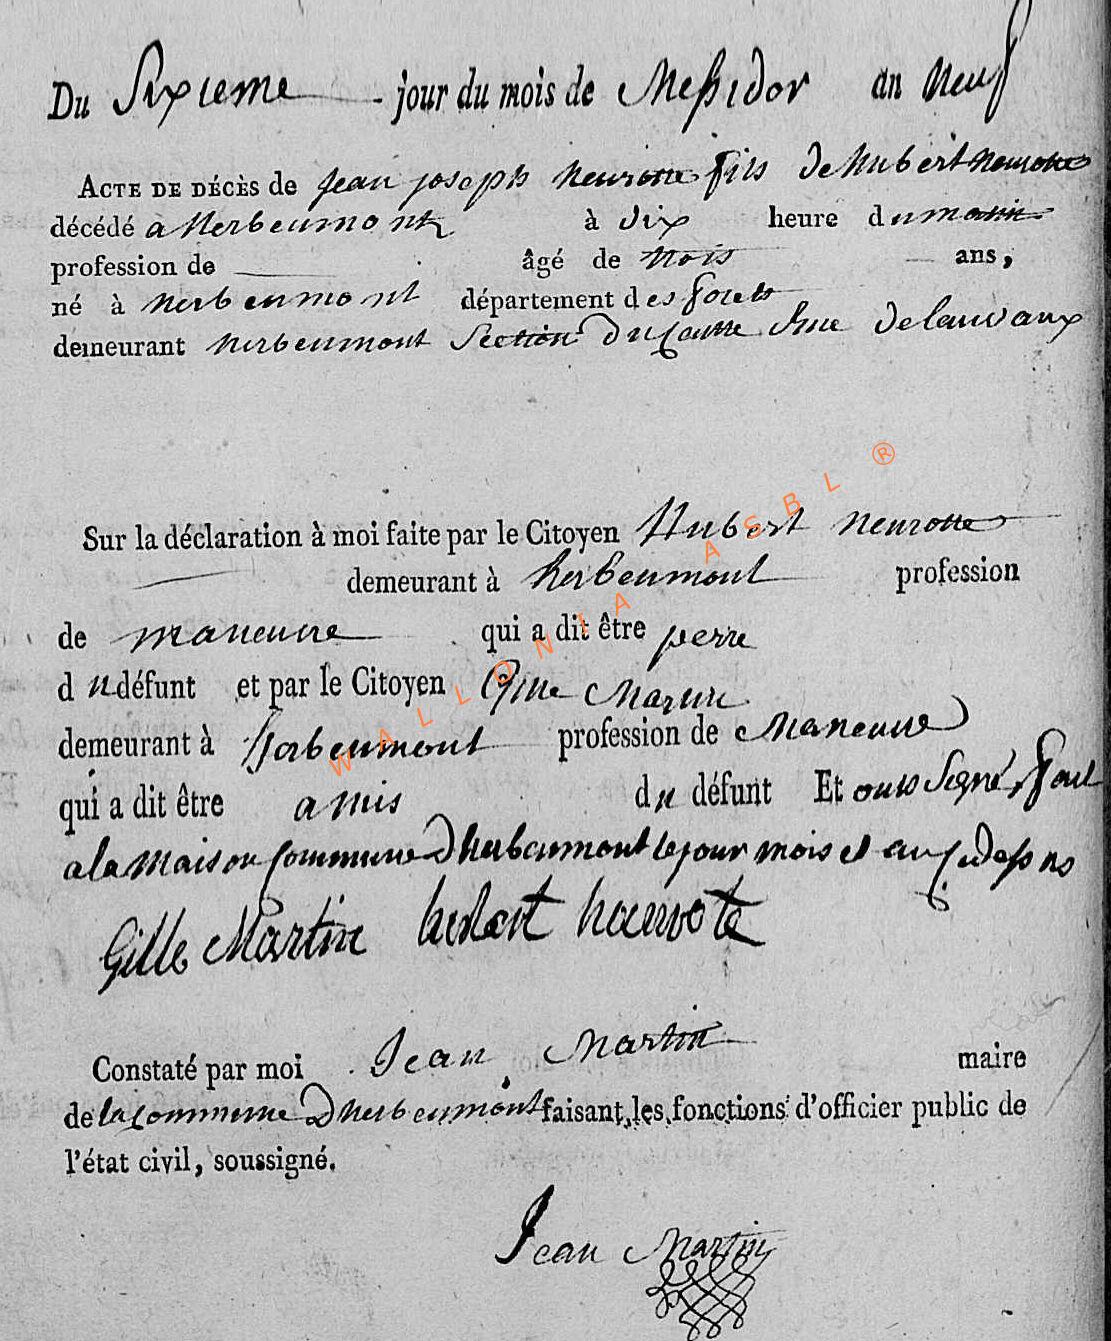 Du Sixieme jour du mois de Messidor an Neuf
ACTE DE DÉCÈS de jean joseph neurotte fils de hubert neurotte
décédé a herbeumont à dix heure du matin
profession de âgé de trois ans,
né à herbeumont département des forets
demeurant herbeumont Section du Centre
Sur la déclaration à moi faite par le Citoyen Hubert neurotte
demeurant à herbeumont profession
de maneuvre qui a dit être perre
du défunt et par le Citoyen Gille Martin
demeurant à herbeumont profession de Maneuvre
qui a dit être amis du défunt Et onts Signé, fait
a la Maison Commune d'herbeumont le jour mois et an ci dessus
Gille Martin hubert
Constaté par moi Jean Martin maire
de la commune D'herbeumont faisant les fonctions d'officier public de
l'état civil, soussigné.
Jean Martin
WALLONIA ASBL ®